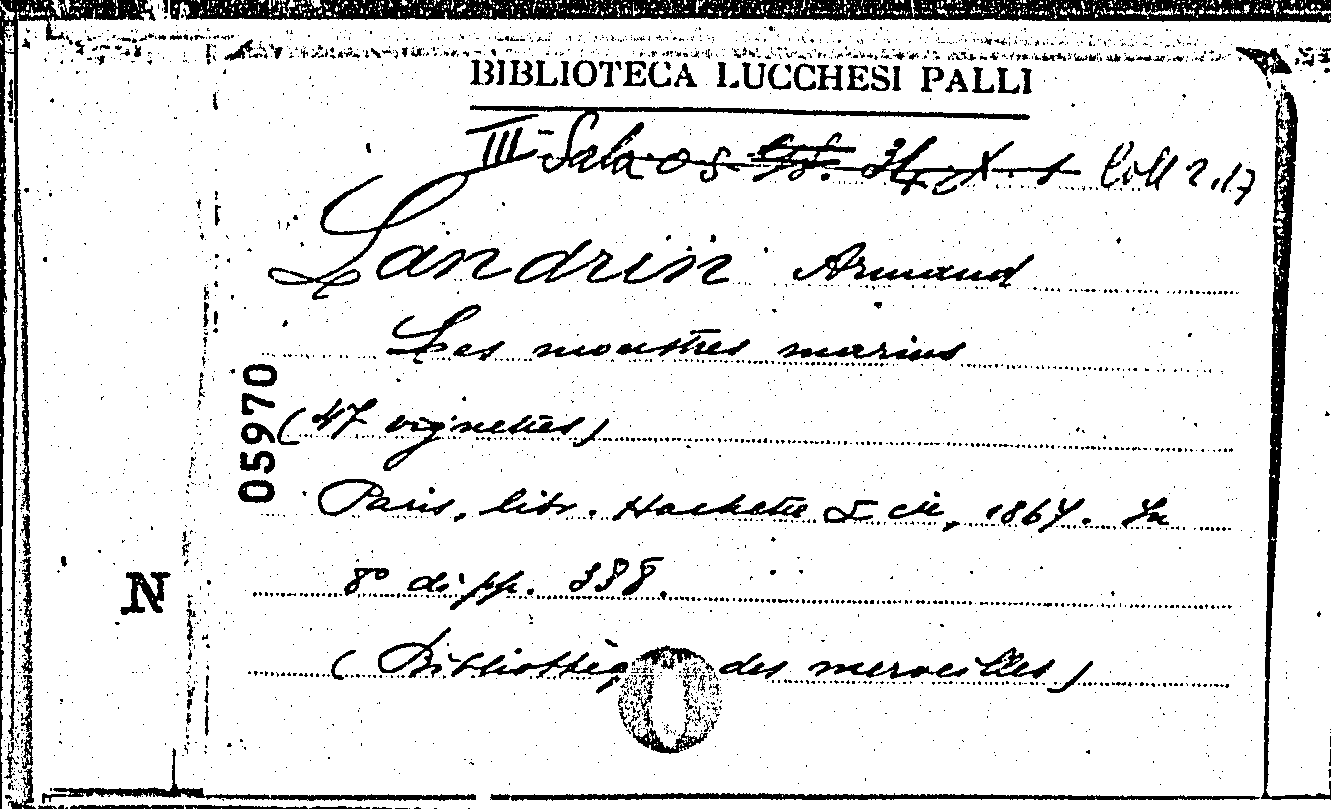 BIBLIOTECA LUCCHESI PALLI
III Sala Coll 2.17
Landrin Armand
Les monstres marins
05970
(47 vignettes)
Paris, libr. Hachette & cie, 1867. In
8° di pp. 338.
N
(Bibliothèq des merveilles)